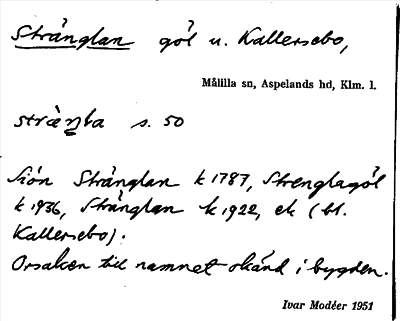 Stränglan göl u. Kallersebo,
Målilla sn, Aspelands hd, Klm. l.
stràŋla s. 50
Siön Stränglan k 1787, Strenglagöl
k 1936, Stränglan k 1922, ek (bl.
Kallersebo).
Orsaken till namnet okänd i bygden.
Ivar Modéer 1951